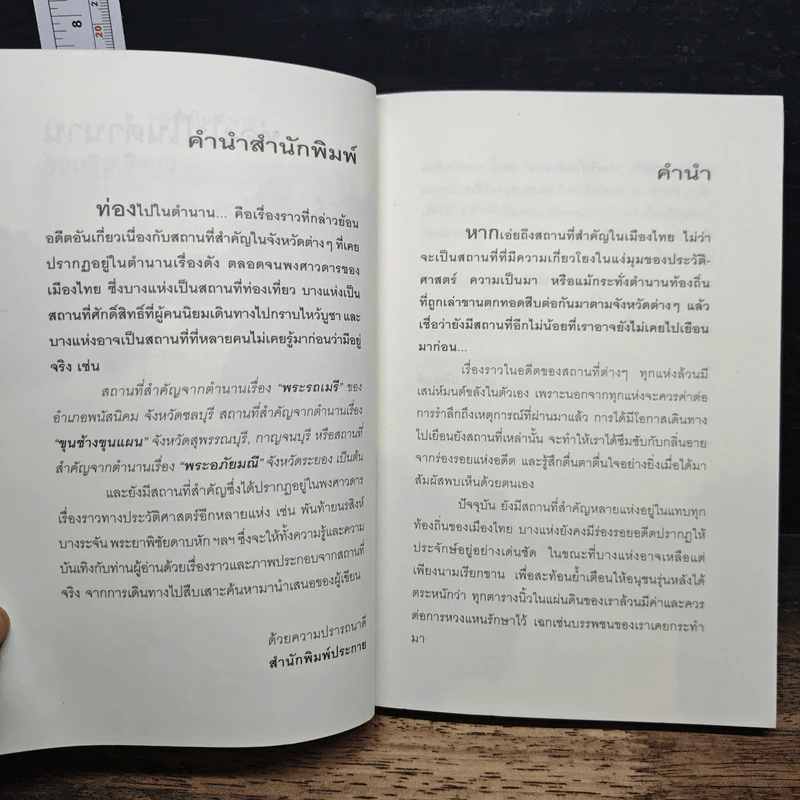 8
2
20
คำนำสำนักพิมพ์
ท่องไปในตำนาน... คือเรื่องราวที่กล่าวย้อน
อดีตอันเกี่ยวเนื่องกับสถานที่สำคัญในจังหวัดต่างๆ ที่เคย
ปรากฏอยู่ในตำนานเรื่องดัง ตลอดจนพงศาวดารของ
เมืองไทย ซึ่งบางแห่งเป็นสถานที่ท่องเที่ยว บางแห่งเป็น
สถานที่ศักดิ์สิทธิ์ที่ผู้คนนิยมเดินทางไปกราบไหว้บูชา และ
บางแห่งอาจเป็นสถานที่ที่หลายคนไม่เคยรู้มาก่อนว่ามีอยู่
จริง เช่น
สถานที่สำคัญจากตำนานเรื่อง "พระรถเมรี" ของ
อำเภอพนัสนิคม จังหวัดชลบุรี สถานที่สำคัญจากตำนานเรื่อง
"ขุนช้างขุนแผน" จังหวัดสุพรรณบุรี, กาญจนบุรี หรือสถานที่
สำคัญจากตำนานเรื่อง "พระอภัยมณี" จังหวัดระยอง เป็นต้น
และยังมีสถานที่สำคัญซึ่งได้ปรากฏอยู่ในพงศาวดาร
เรื่องราวทางประวัติศาสตร์อีกหลายแห่ง เช่น พันท้ายนรสิงห์
บางระจัน พระยาพิชัยดาบหัก ฯลฯ ซึ่งจะให้ทั้งความรู้และความ
บันเทิงกับท่านผู้อ่านด้วยเรื่องราวและภาพประกอบจากสถานที่
จริง จากการเดินทางไปสืบเสาะค้นหามานำเสนอของผู้เขียน
ด้วยความปรารถนาดี
สำนักพิมพ์ประกาย
คำนำ
หากเอ่ยถึงสถานที่สำคัญในเมืองไทย ไม่ว่า
จะเป็นสถานที่ที่มีความเกี่ยวโยงในแง่มุมของประวัติ-
ศาสตร์ ความเป็นมา หรือแม้กระทั่งตำนานท้องถิ่น
ที่ถูกเล่าขานตกทอดสืบต่อกันมาตามจังหวัดต่างๆ แล้ว
เชื่อว่ายังมีสถานที่อีกไม่น้อยที่เราอาจยังไม่เคยไปเยือน
มาก่อน...
เรื่องราวในอดีตของสถานที่ต่างๆ ทุกแห่งล้วนมี
เสน่ห์มนต์ขลังในตัวเอง เพราะนอกจากทุกแห่งจะควรค่าต่อ
การรำลึกถึงเหตุการณ์ที่ผ่านมาแล้ว การได้มีโอกาสเดินทาง
ไปเยือนยังสถานที่เหล่านั้น จะทำให้เราได้ซึมซับกับกลิ่นอาย
จากร่องรอยแห่งอดีต และรู้สึกตื่นตาตื่นใจอย่างยิ่งเมื่อได้มา
สัมผัสพบเห็นด้วยตนเอง
ปัจจุบัน ยังมีสถานที่สำคัญหลายแห่งอยู่ในแทบทุก
ท้องถิ่นของเมืองไทย บางแห่งยังคงมีร่องรอยอดีตปรากฏให้
ประจักษ์อยู่อย่างเด่นชัด ในขณะที่บางแห่งอาจเหลือแต่
เพียงนามเรียกขาน เพื่อสะท้อนย้ำเตือนให้อนุชนรุ่นหลังได้
ตระหนักว่า ทุกตารางนิ้วในแผ่นดินของเราล้วนมีค่าและควร
ต่อการหวงแหนรักษาไว้ เฉกเช่นบรรพชนของเราเคยกระทำ
มา